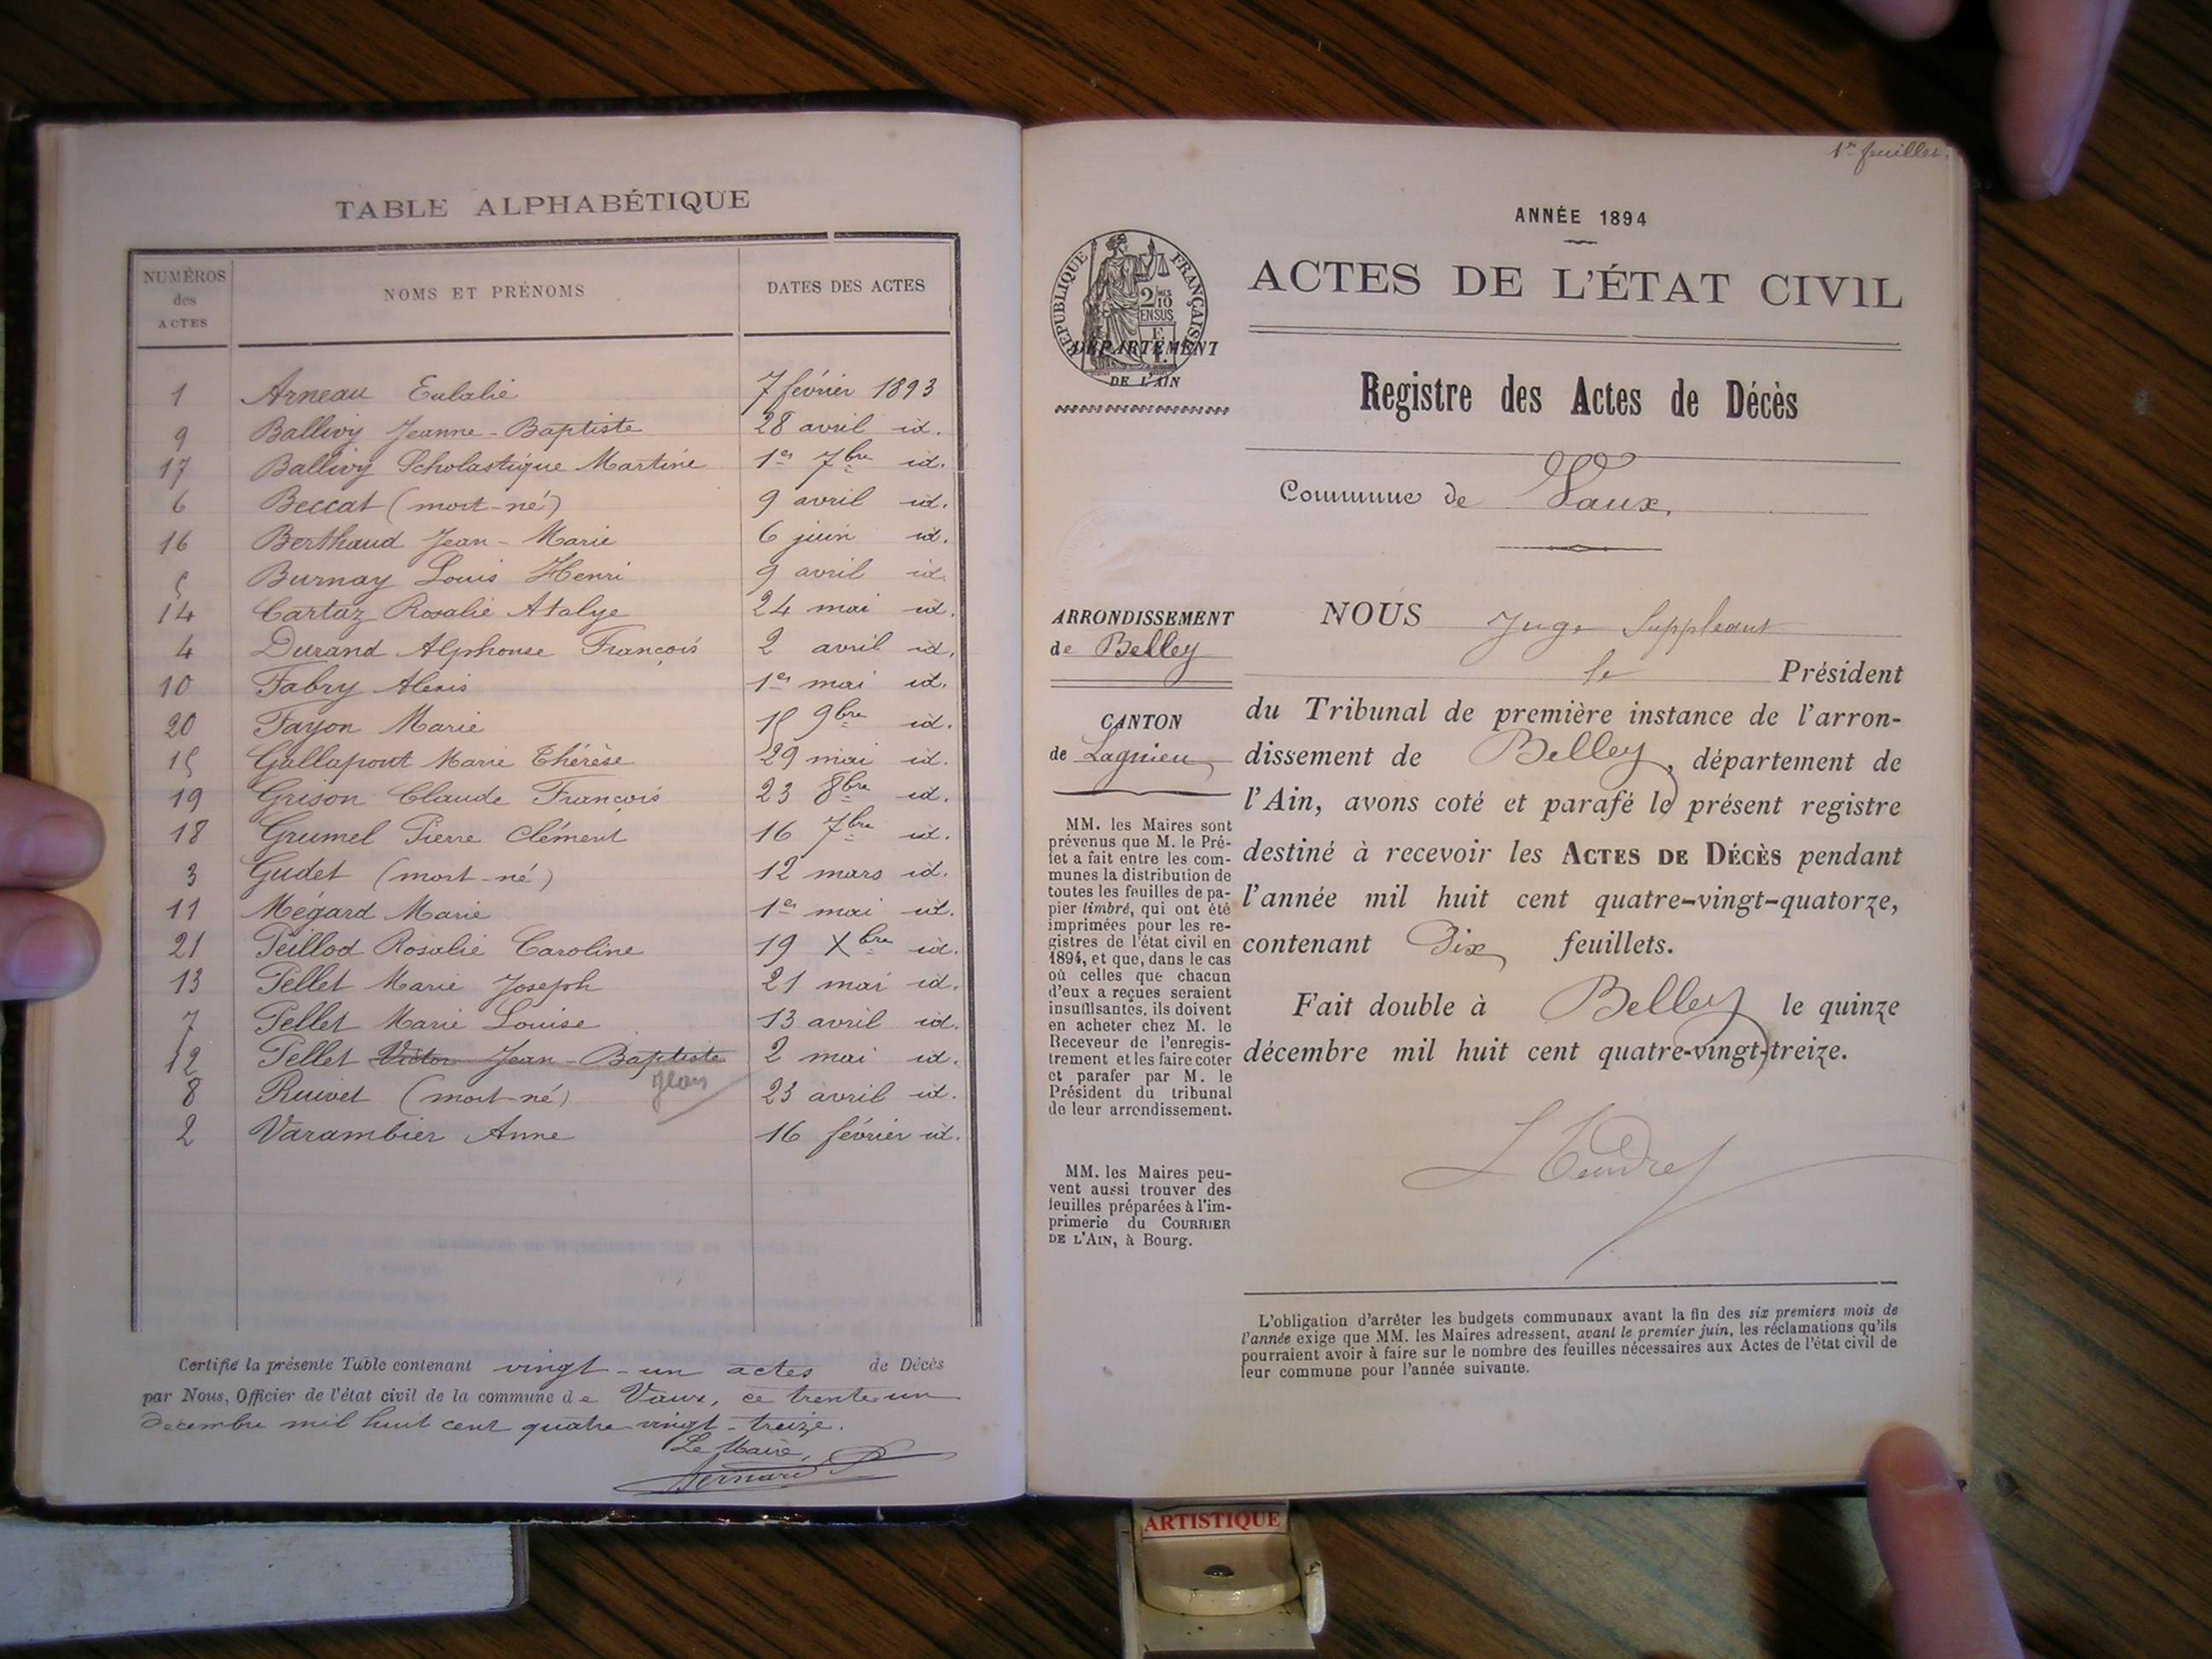 TABLE ALPHABÉTIQUE
NUMÉROS des ACTES NOMS ET PRÉNOMS DATES DES ACTES
1 Arneau Eulalie 7 février 1893
9 Ballivy Jeanne-Baptiste 28 avril id.
17 Ballivy Scholastique Martine 1er 7bre id.
6 Beccat (mort-né) 9 avril id.
16 Berthaud Jean-Marie 6 juin id.
5 Burnay Louis Henri 9 avril id.
14 Cartaz Rosalie Atalye 24 mai id.
4 Durand Alphonse François 2 avril id.
10 Fabry Alexis 1er mai id.
20 Fayon Marie 15 9bre id.
15 Gallapont Marie Thérèse 29 mai id.
19 Grison Claude François 23 8bre id.
18 Grumel Pierre Clément 16 7bre id.
3 Gudet (mort-né) 12 mars id.
11 Mégard Marie 1er mai id.
21 Peillod Rosalie Caroline 19 Xbre id.
13 Pellet Marie Joseph 21 mai id.
7 Pellet Marie Louise 13 avril id.
12 Pellet Victor Jean-Baptiste 2 mai id.
Jean
8 Ruivet (mort-né) 23 avril id.
2 Varambier Anne 16 février id.
Certifié la présente Table contenant vingt-un actes de Décès
par Nous, Officier de l'état civil de la commune de Vaux, ce trente-un
décembre mil huit cent quatre-vingt-treize.
Le Maire,
Bernard
1er feuillet.
ANNÉE 1894
RÉPUBLIQUE FRANÇAISE
2/10 EN SUS
DÉPARTEMENT
DE L'AIN
ACTES DE L'ÉTAT CIVIL
Registre des Actes de Décès
Commune de Vaux,
ARRONDISSEMENT
de Belley
CANTON
de Lagnieu
MM. les Maires sont
prévenus que M. le Pré-
fet a fait entre les com-
munes la distribution de
toutes les feuilles de pa-
pier timbré, qui ont été
imprimées pour les re-
gistres de l'état civil en
1894, et que, dans le cas
où celles que chacun
d'eux a reçues seraient
insuffisantes, ils doivent
en acheter chez M. le
Receveur de l'enregis-
trement et les faire coter
et parafer par M. le
Président du tribunal
de leur arrondissement.
MM. les Maires peu-
vent aussi trouver des
feuilles préparées à l'im-
primerie du COURRIER
DE L'AIN, à Bourg.
NOUS Juge Suppléant
le Président
du Tribunal de première instance de l'arron-
dissement de Belley, département de
l'Ain, avons coté et parafé le présent registre
destiné à recevoir les ACTES DE DÉCÈS pendant
l'année mil huit cent quatre-vingt-quatorze,
contenant Dix feuillets.
Fait double à Belley le quinze
décembre mil huit cent quatre-vingt-treize.
L'obligation d'arrêter les budgets communaux avant la fin des six premiers mois de
l'année exige que MM. les Maires adressent, avant le premier juin, les réclamations qu'ils
pourraient avoir à faire sur le nombre des feuilles nécessaires aux Actes de l'état civil de
leur commune pour l'année suivante.
ARTISTIQUE